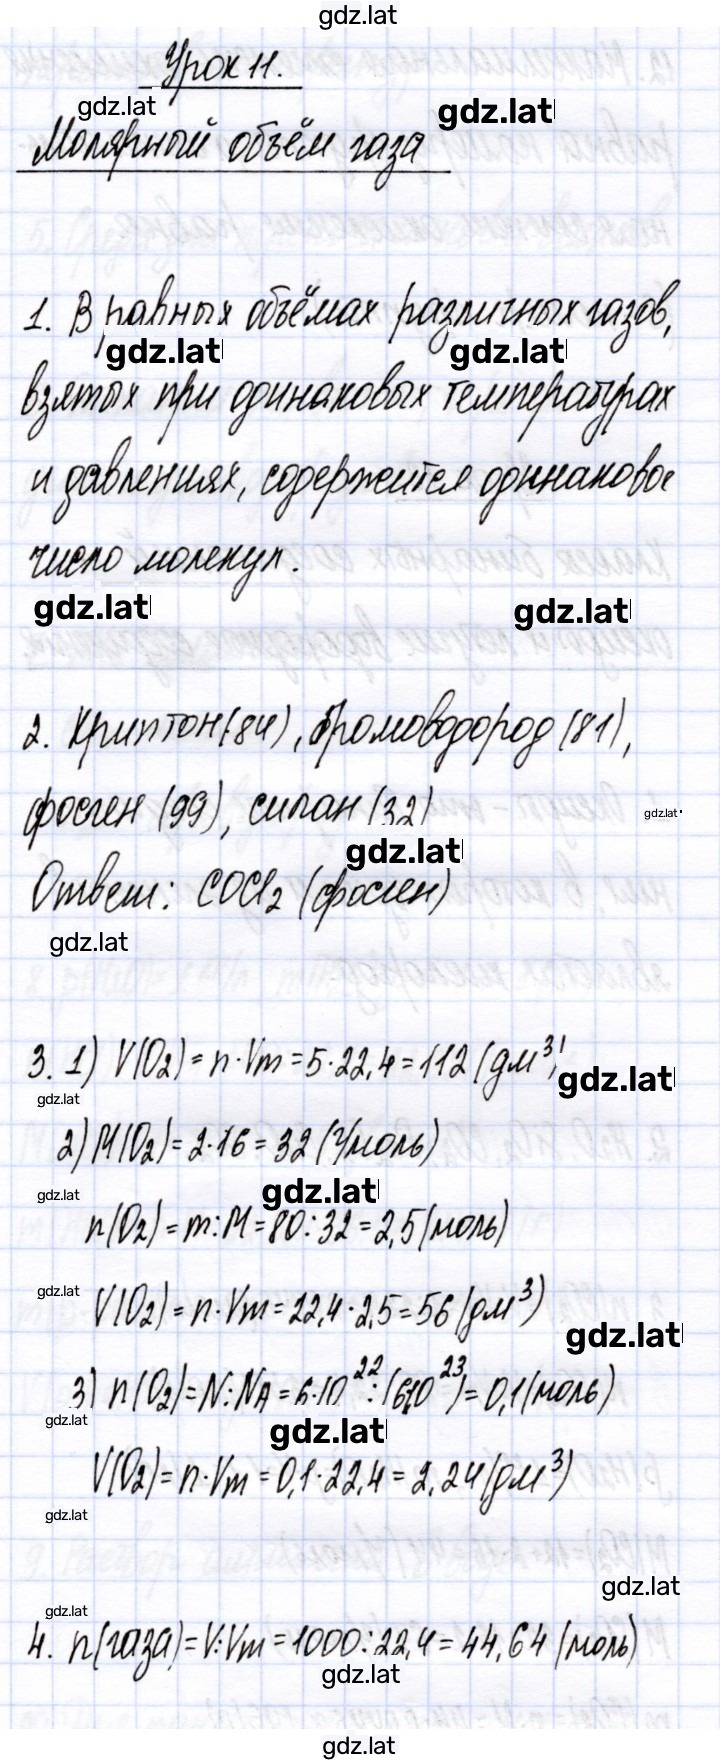 gdz.lat
Урок 11.
gdz.lat
gdz.lat
Молярный объём газа
1. В равных объёмах различных газов,
gdz.lat
gdz.lat
взятых при одинаковых температурах
и давлениях, содержится одинаковое
число молекул.
gdz.lat
gdz.lat
2. Криптон (84), бромоводород (81),
фосген (99), силан (32)
gdz.lat
gdz.lat
Ответ: COCl₂ (фосген)
gdz.lat
3. 1) V(O₂) = n·Vm = 5·22,4 = 112 (дм³)
gdz.lat
gdz.lat
2) M(O₂) = 2·16 = 32 (г/моль)
gdz.lat
gdz.lat
n(O₂) = m:M = 80:32 = 2,5 (моль)
gdz.lat
V(O₂) = n·Vm = 22,4·2,5 = 56 (дм³)
gdz.lat
3) n(O₂) = N:NA = 6·10²² : (6·10²³) = 0,1 (моль)
gdz.lat
gdz.lat
V(O₂) = n·Vm = 0,1·22,4 = 2,24 (дм³)
gdz.lat
gdz.lat
gdz.lat
4. n(газа) = V:Vm = 1000:22,4 = 44,64 (моль)
gdz.lat
gdz.lat